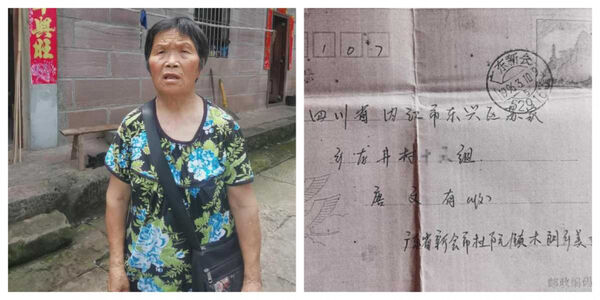 興旺
107
广东新会
96.3.10
529
四川省内江市东兴区
乡龙井村十 组
唐文有收
广东省新会市杜阮镇木朗
邮政编码